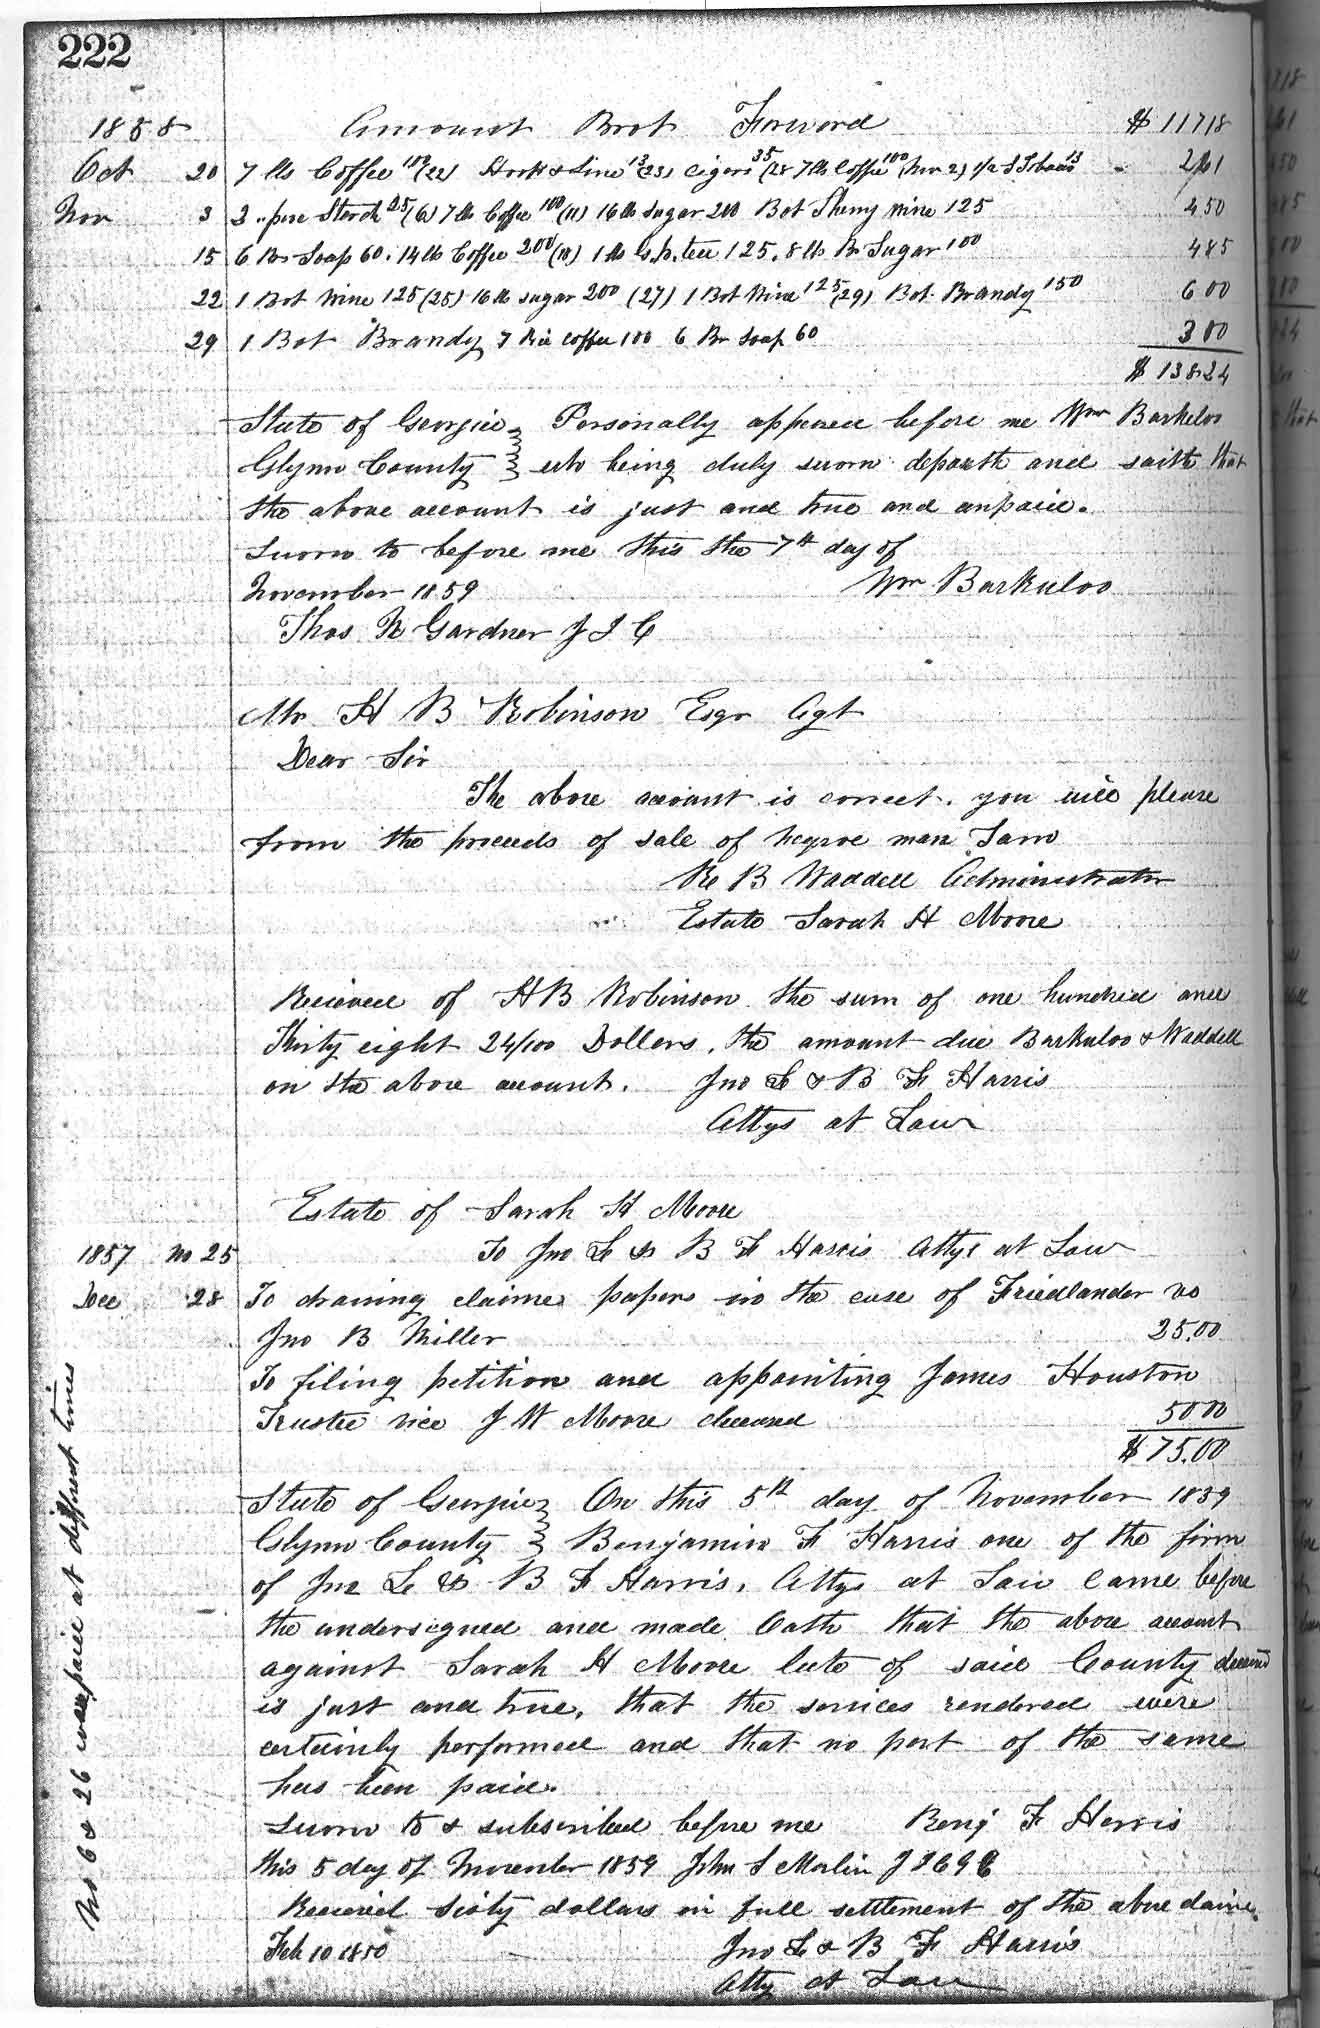 222
1858 Amount Brot Forword $ 117 18
Oct 20 7 lbs Coffee (22) Hook & Line 13 (23) Cigars 35 (28 7 lbs Coffee 100 (Nov 2) 13 - 2 61
Nov 3 3 Starch 25 (6) 7 lb Coffee 100 (11) 16 lb Sugar 200 Bot Sherry Wine 125 4 50
15 6 Br Soap 60. 14 lb Coffee 200 (18) 1 lb tea 125. 8 lb Br Sugar 100 4 85
22 1 Bot Wine 125 (25) 16 lb sugar 200 (27) 1 Bot Wine 125 (29) Bot. Brandy 150 6 00
29 1 Bot Brandy 7 Rio Coffee 100 6 Br Soap 60 3 00
$ 138.24
State of Georgia Personally appeared before me Wm Barkuloo
Glynn County who being duly sworn deposeth and saith that
the above account is just and true and unpaid.
Sworn to before me this the 7th day of
November 1859 Wm Barkuloo
Thos W Gardner J I C
Mr H B Robinson Esqr Agt
Dear Sir
The above account is correct. you will please
from the proceeds of sale of negroe man Sam
B Waddell Administrator
Estate Sarah H Moore
Recieved of H B Robinson the sum of one hundred and
Thirty eight 24/100 Dollers, the amount due Barkuloo & Waddell
on the above account. Jno L & B F Harris
Attys at Law
Estate of Sarah H Moore
1857 No 25 To Jno L & B F Harris Attys at Law
Dec 28 To drawing claime papers in the case of Friedlander vs
Jno B Miller 25.00
To filing petition and appointing James Houston
Trustee vice J W Moore deceased 50 00
$ 75.00
State of Georgia On this 5th day of November 1859
Glynn County Benjamin F Harris one of the firm
of Jno L & B F Harris, Attys at Law Came before
the undersigned and made Oath that the above account
against Sarah H Moore late of said County deceased
is just and true, that the services rendered were
certainly performed and that no part of the same
has been paid.
Sworn to & subscribed before me Benj F Harris
this 5 day of November 1859 John S Morlin J I C G C
Received sixty dollars in full settlement of the above claim.
Feb 10 1850 Jno L & B F Harris
Atty at Law
No 6 & 26 was paid at different times